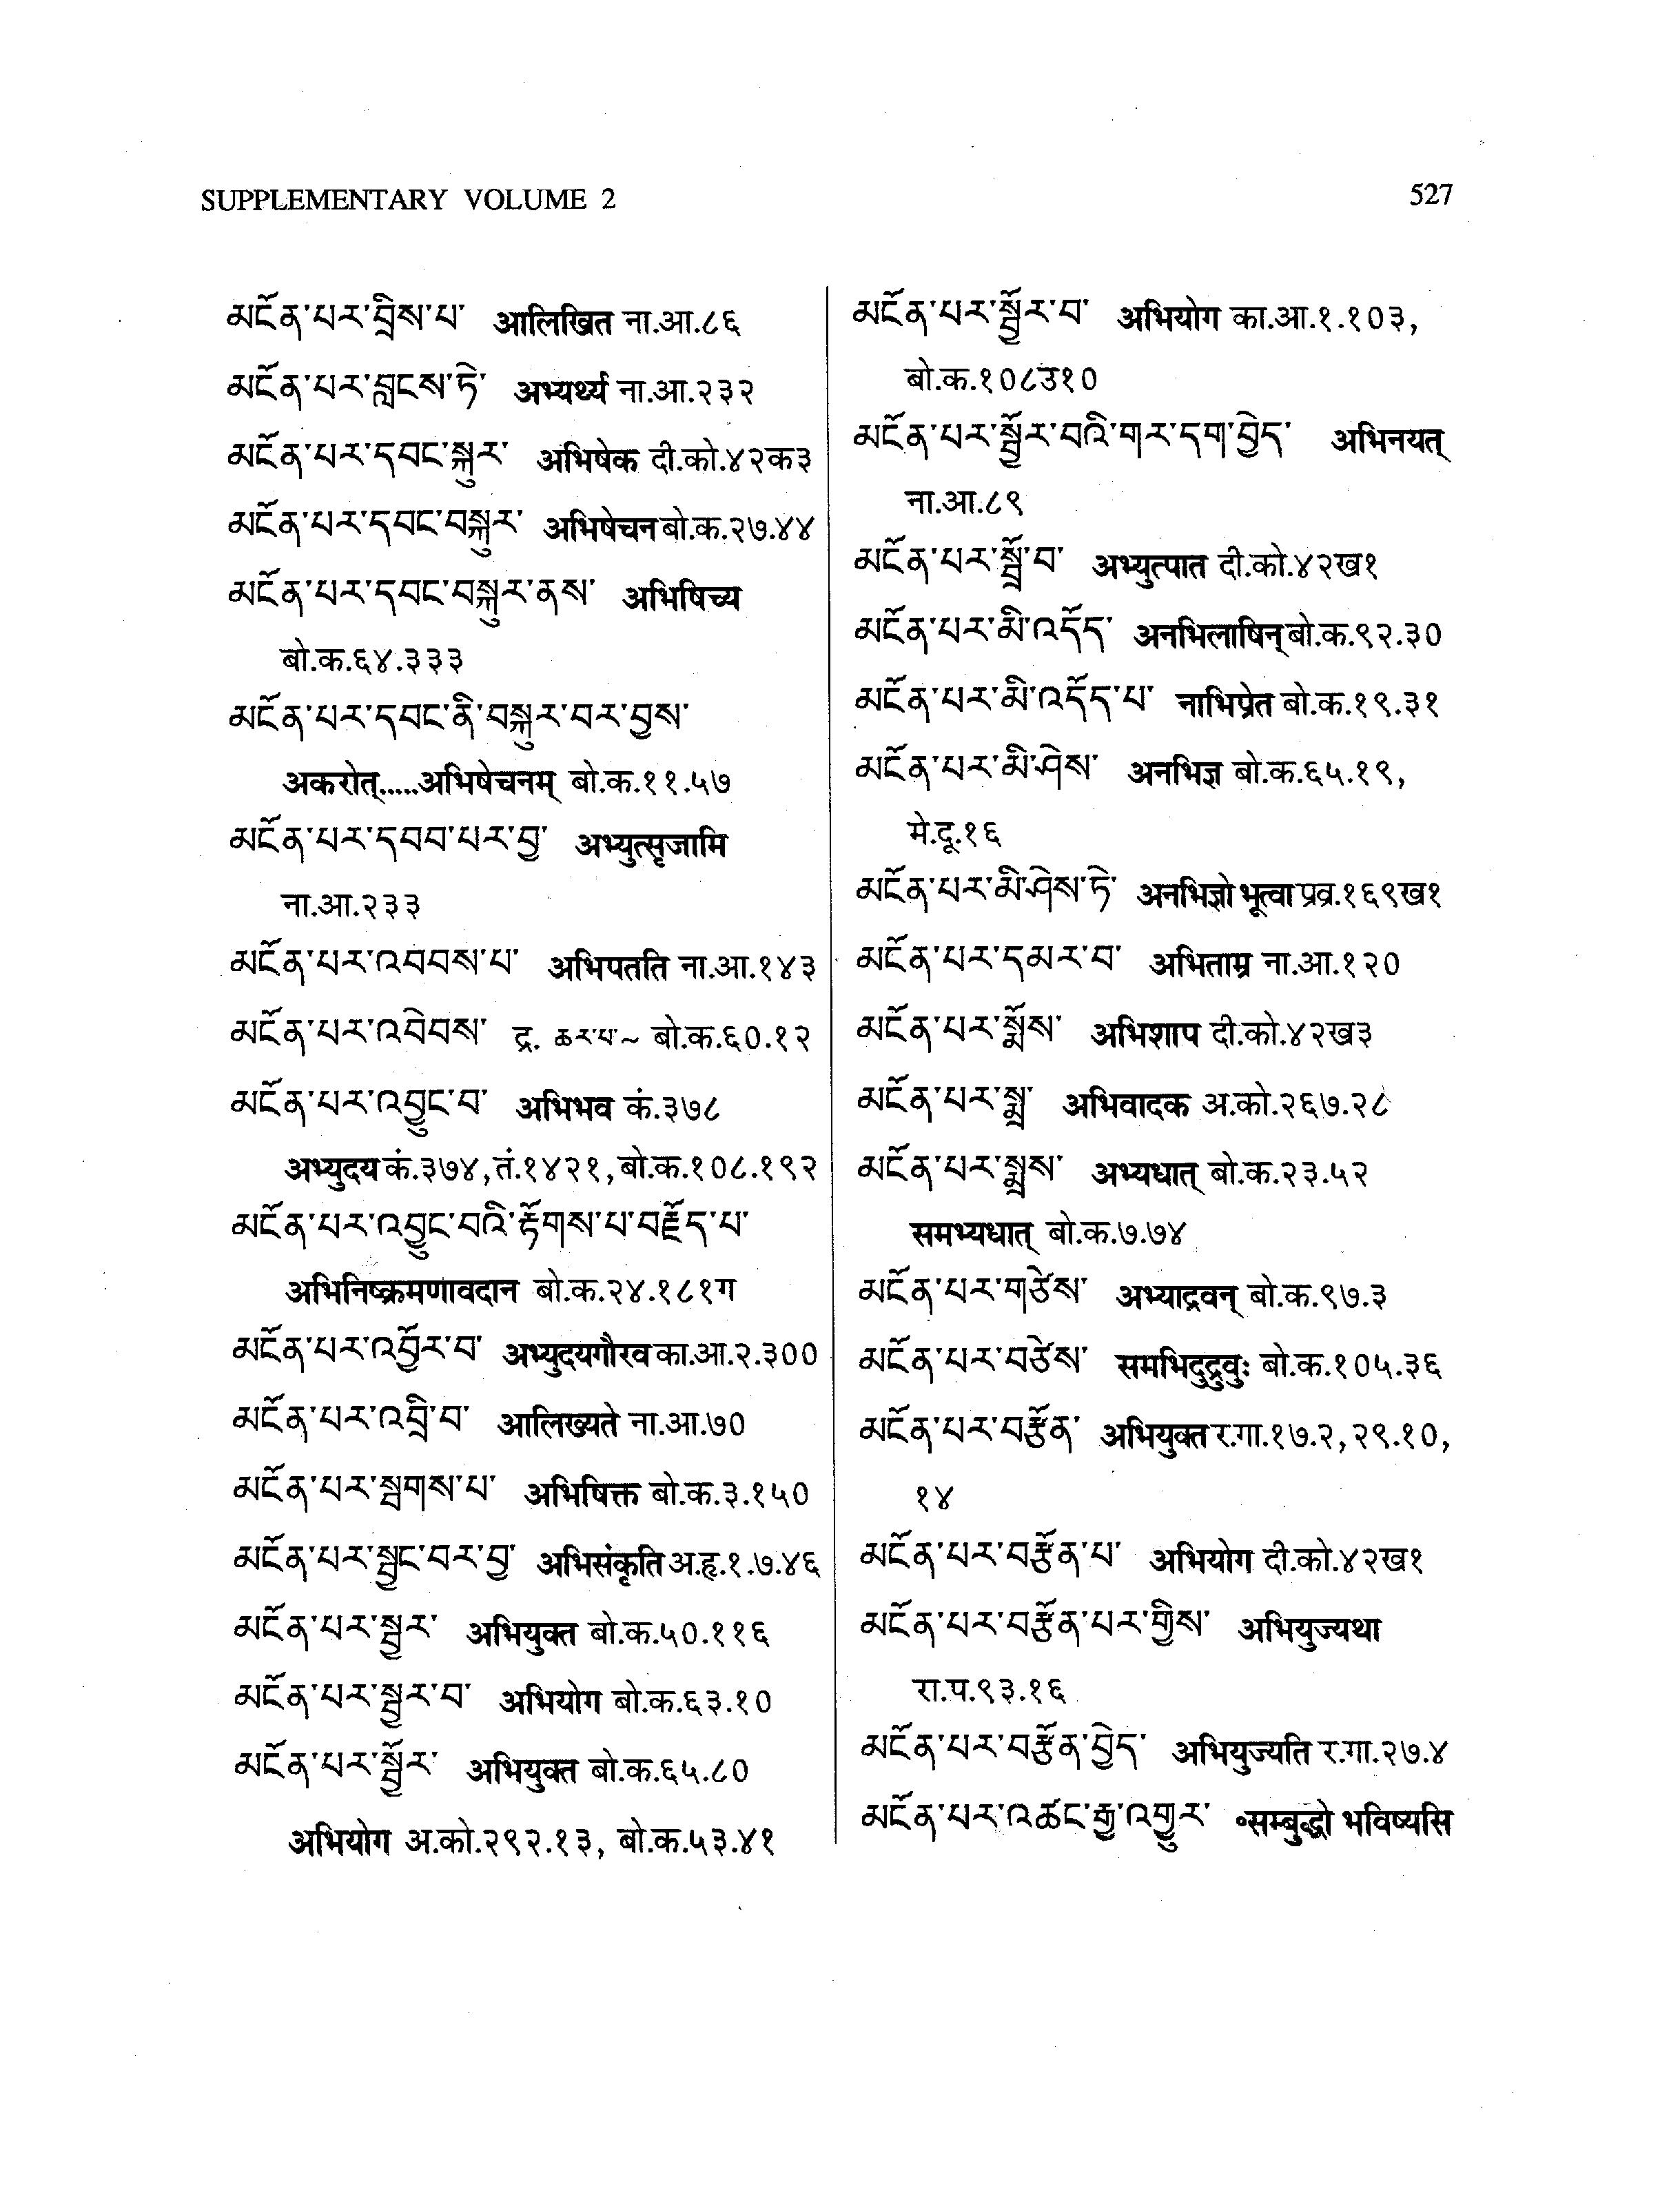 SUPPLEMENTARY VOLUME 2
527
མངོན་པར་བྲིས་པ་ आलिखित ना.आ.८६
མངོན་པར་བླངས་ཏེ་ अभ्यर्थ्य ना.आ.२३२
མངོན་པར་དབང་སྐུར་ अभिषेक दी.को.४२क३
མངོན་པར་དབང་བསྐུར་ अभिषेचन बो.क.२७.४४
མངོན་པར་དབང་བསྐུར་ནས་ अभिषिच्य
बो.क.६४.३३३
མངོན་པར་དབང་ནི་བསྐུར་བར་བྱས་
अकरोत्.....अभिषेचनम् बो.क.११.५७
མངོན་པར་དབབ་པར་བྱ་ अभ्युत्सृजामि
ना.आ.२३३
མངོན་པར་འབབས་པ་ अभिपतति ना.आ.१४३
མངོན་པར་འབེབས་ द्र. ཆར་པ་~ बो.क.६०.१२
མངོན་པར་འབྱུང་བ་ अभिभव कं.३७८
अभ्युदय कं.३७४, तं.१४२१, बो.क.१०८.१९२
མངོན་པར་འབྱུང་བའི་རྟོགས་པ་བརྗོད་པ་
अभिनिष्क्रमणावदान बो.क.२४.१८१ग
མངོན་པར་འབྱོར་བ་ अभ्युदयगौरव का.आ.२.३००
མངོན་པར་འབྲི་བ་ आलिख्यते ना.आ.७०
མངོན་པར་སྦགས་པ་ अभिषिक्त बो.क.३.१५०
མངོན་པར་སྦྱང་བར་བྱ་ अभिसंकृति अ.हृ.१.७.४६
མངོན་པར་སྦྱར་ अभियुक्त बो.क.५०.११६
མངོན་པར་སྦྱར་བ་ अभियोग बो.क.६३.१०
མངོན་པར་སྦྱོར་ अभियुक्त बो.क.६५.८०
अभियोग अ.को.२९२.१३, बो.क.५३.४१
མངོན་པར་སྦྱོར་བ་ अभियोग का.आ.१.१०३,
बो.क.१०८उ१०
མངོན་པར་སྦྱོར་བའི་གར་དག་བྱེད་ अभिनयत्
ना.आ.८९
མངོན་པར་སྤྲོ་བ་ अभ्युत्पात दी.को.४२ख१
མངོན་པར་མི་འདོད་ अनभिलाषिन् बो.क.९२.३०
མངོན་པར་མི་འདོད་པ་ नाभिप्रेत बो.क.१९.३१
མངོན་པར་མི་ཤེས་ अनभिज्ञ बो.क.६५.१९,
मे.दू.१६
མངོན་པར་མི་ཤེས་ཏེ་ अनभिज्ञो भूत्वा प्रव्र.१६९ख१
མངོན་པར་དམར་བ་ अभिताम्र ना.आ.१२०
མངོན་པར་སྨོས་ अभिशाप दी.को.४२ख३
མངོན་པར་སྨྲ་ अभिवादक अ.को.२६७.२८
མངོན་པར་སྨྲས་ अभ्यधात् बो.क.२३.५२
समभ्यधात् बो.क.७.७४
མངོན་པར་གཙེས་ अभ्याद्रवन् बो.क.९७.३
མངོན་པར་བཙེས་ समभिदुद्रुवुः बो.क.१०५.३६
མངོན་པར་བརྩོན་ अभियुक्त र.गा.१७.२, २९.१०,
१४
མངོན་པར་བརྩོན་པ་ अभियोग दी.को.४२ख१
མངོན་པར་བརྩོན་པར་གྱིས་ अभियुज्यथा
रा.प.९३.१६
མངོན་པར་བརྩོན་བྱེད་ अभियुज्यति र.गा.२७.४
མངོན་པར་འཚང་རྒྱ་འགྱུར་ ॰सम्बुद्धो भविष्यसि